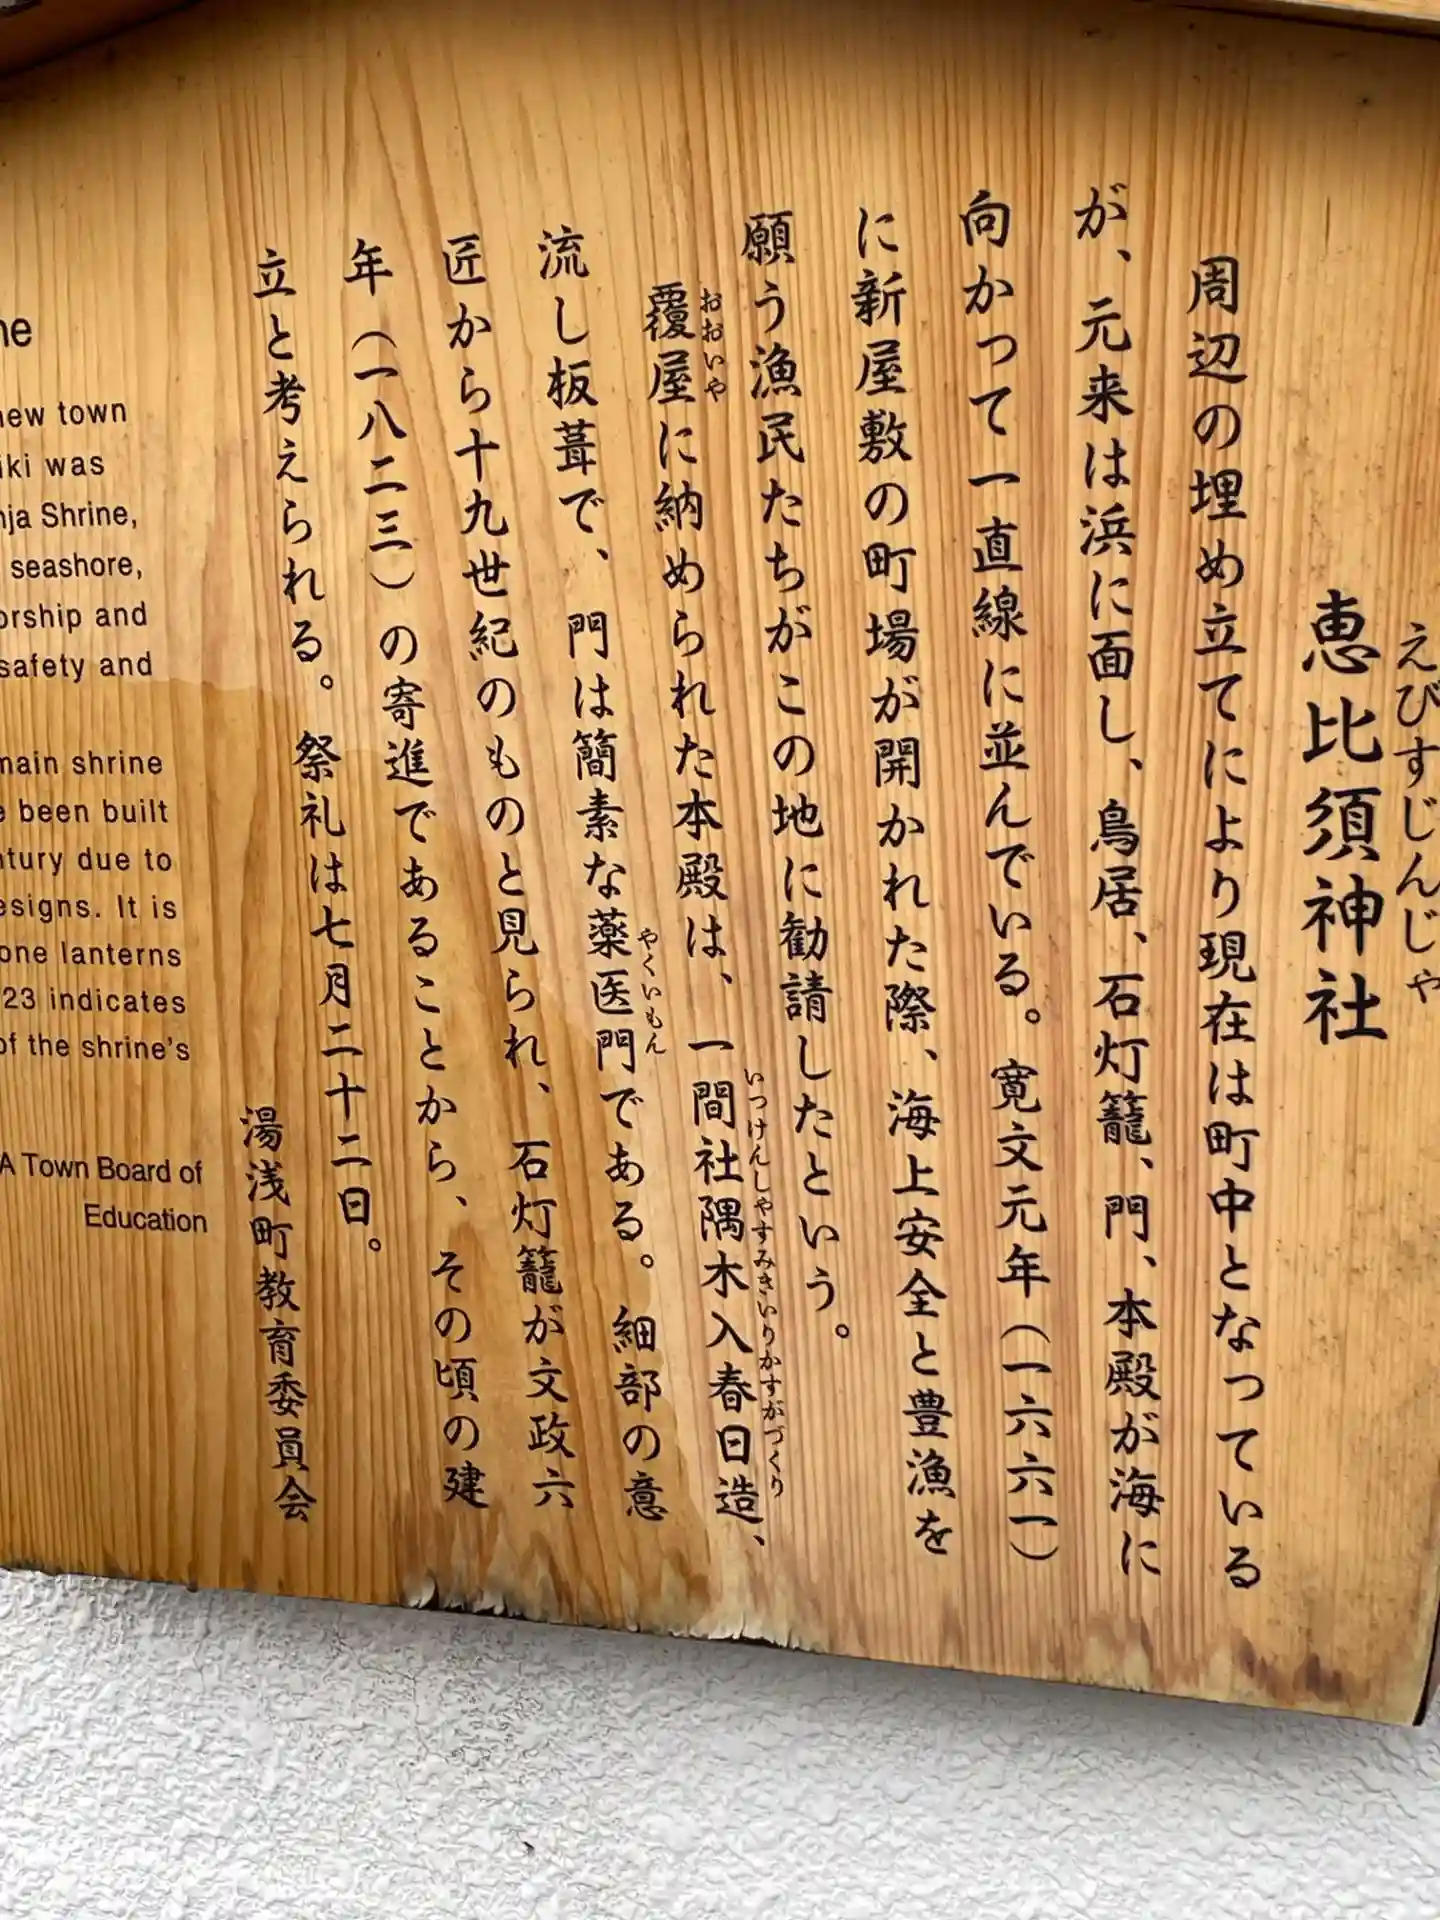 えびすじんじゃ
恵比須神社
周辺の埋め立てにより現在は町中となっている
が、元来は浜に面し、鳥居、石灯籠、門、本殿が海に
向かって一直線に並んでいる。寛文元年（一六六一）
に新屋敷の町場が開かれた際、海上安全と豊漁を
願う漁民たちがこの地に勧請したという。
おおいや いつけんしゃすみきいりかすがづくり
覆屋に納められた本殿は、一間社隅木入春日造、
やくいもん
流し板葺で、門は簡素な薬医門である。細部の意
匠から十九世紀のものと見られ、石灯籠が文政六
年（一八二三）の寄進であることから、その頃の建
立と考えられる。祭礼は七月二十二日。
湯浅町教育委員会
ne
new town
iki was
nja Shrine,
seashore,
orship and
safety and
main shrine
e been built
ntury due to
esigns. It is
one lanterns
23 indicates
of the shrine's
A Town Board of
Education